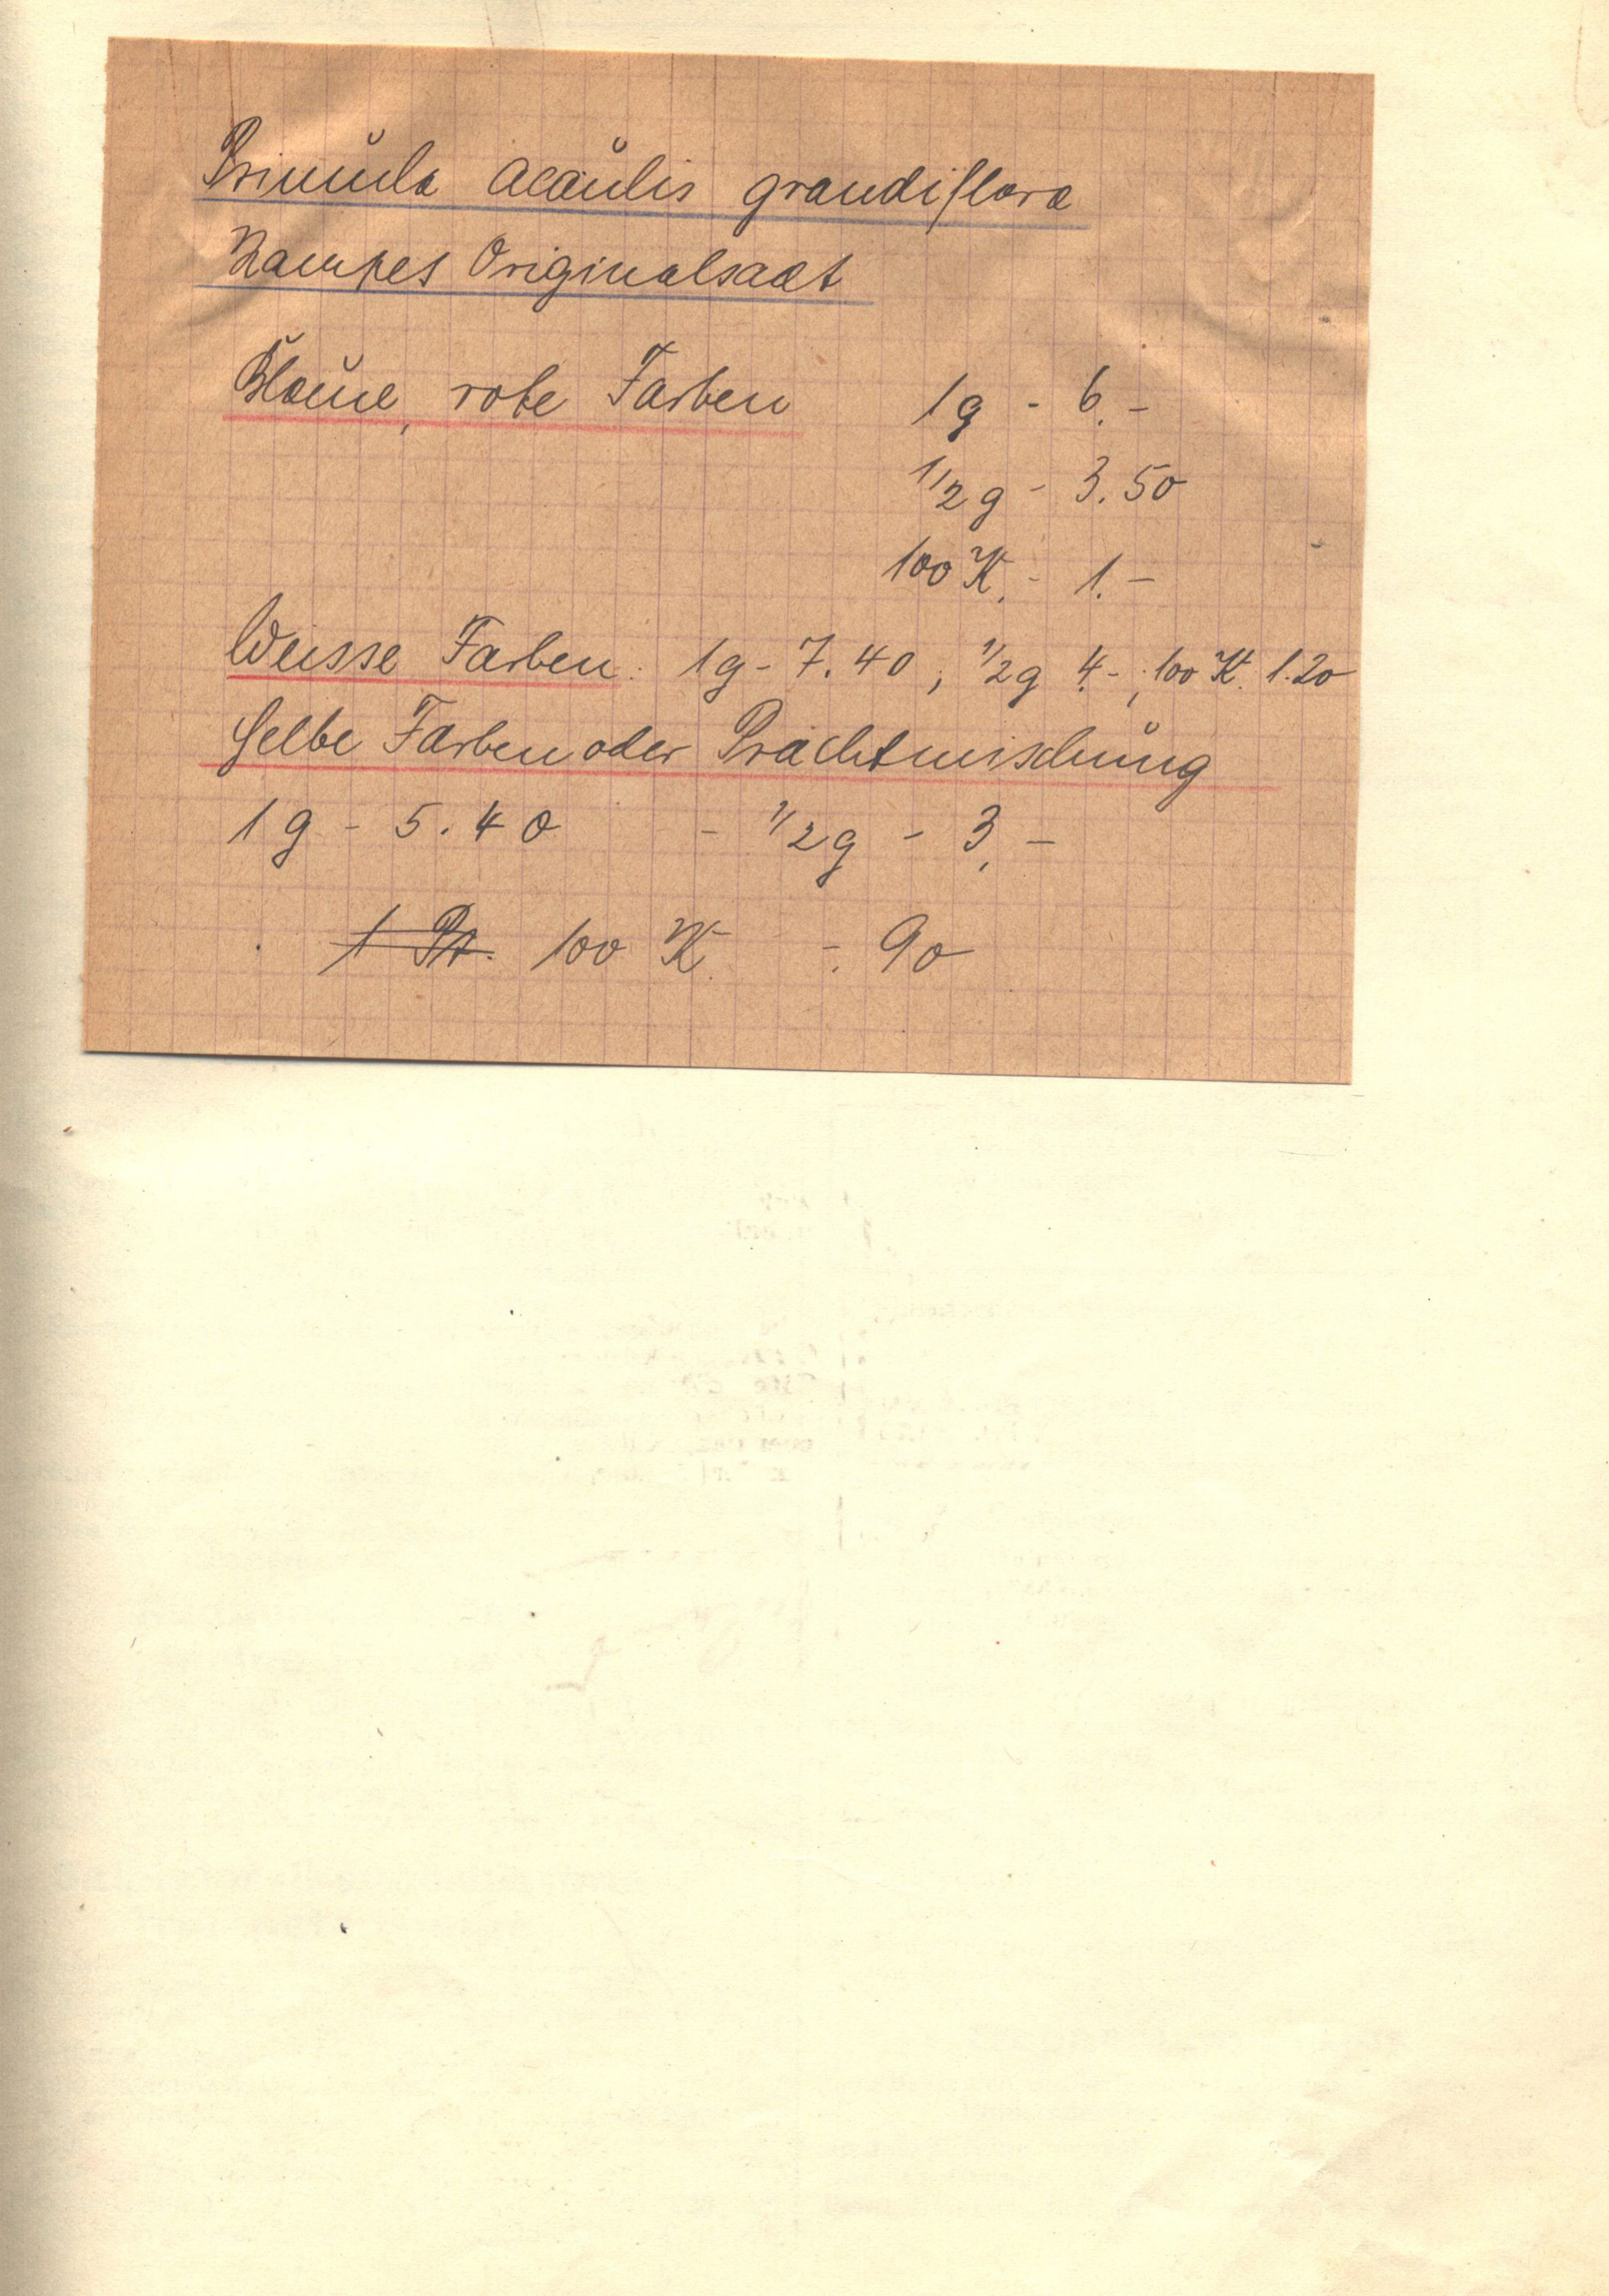 Primula acaulis grandiflora
Kampes Originalsaat
Blaue, rote Farben 1g - 6.-
1/2g - 3.50
100 K. - 1.-
Weisse Farben: 1g - 7.40, 1/2g 4.-, 100 K. 1.20
Gelbe Farben oder Prachtmischung
1g - 5.40 - 1/2g - 3.-
1 Pt. 100 K. -.90